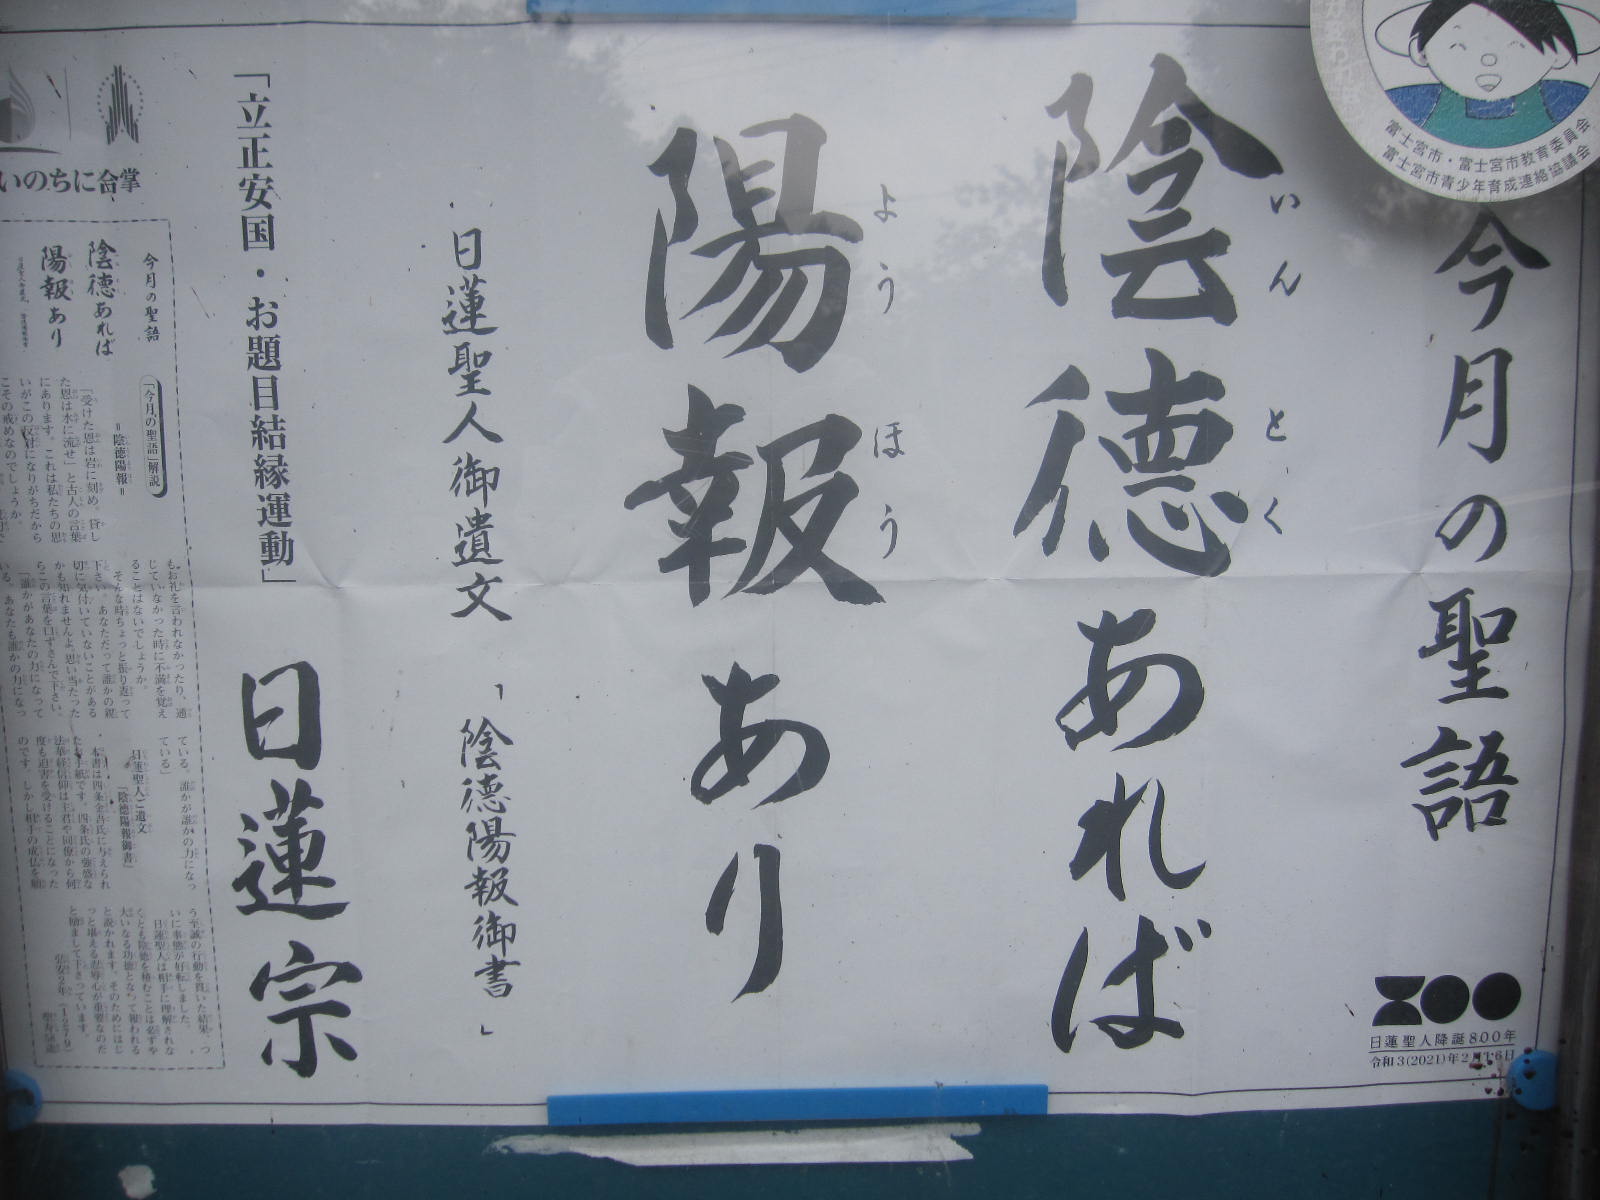 今月の聖語
陰徳あれば
いんとく
陽報あり
ようほう
日蓮聖人御遺文
「陰徳陽報御書」
「立正安国・お題目結縁運動」
日蓮宗
富士宮市・富士宮市教育委員会
富士宮市青少年育成連絡協議会
800
日蓮聖人降誕800年
令和3(2021)年2月16日
いのちに合掌
今月の聖語
陰徳あれば
陽報あり
「今月の聖語」解説
＝陰徳陽報＝
「受けた恩は岩に刻め。貸し
た恩は水に流せ」と古人の言葉
にあります。これは私たちの恩
いがこの反対になりがちだから
こその戒めなのでしょうか。
もお礼を言われなかったり、通
じていなかった時に不満を覚え
ることはないでしょうか。
そんな時ちょっと振り返って
下さい。あなただって誰かの親
切に気付いていないことがある
かも知れませんよ。思い当たった
らこの言葉を口ずさんで下さい。
「誰かがあなたの力になって
いる、あなたも誰かの力になっ
ている。誰かが誰かの力になっ
ている」
日蓮聖人ご遺文
「陰徳陽報御書」
本書は四条金吾氏に与えられ
たお手紙です。四条氏の強盛な
法華経信仰は主君や同僚から何
度も迫害を受けることになった
のです。しかし相手の成仏を願
う至誠の行動を貫いた結果、つ
いに事態が好転しました。
日蓮聖人は相手に理解されな
くとも陰徳を積むことは必ずや
大いなる功徳となって報われる
と説かれます。そのためにはじ
っと堪える忍辱心が重要なのだ
と励まして下さっています。
弘安2年(1279)
聖寿58歳